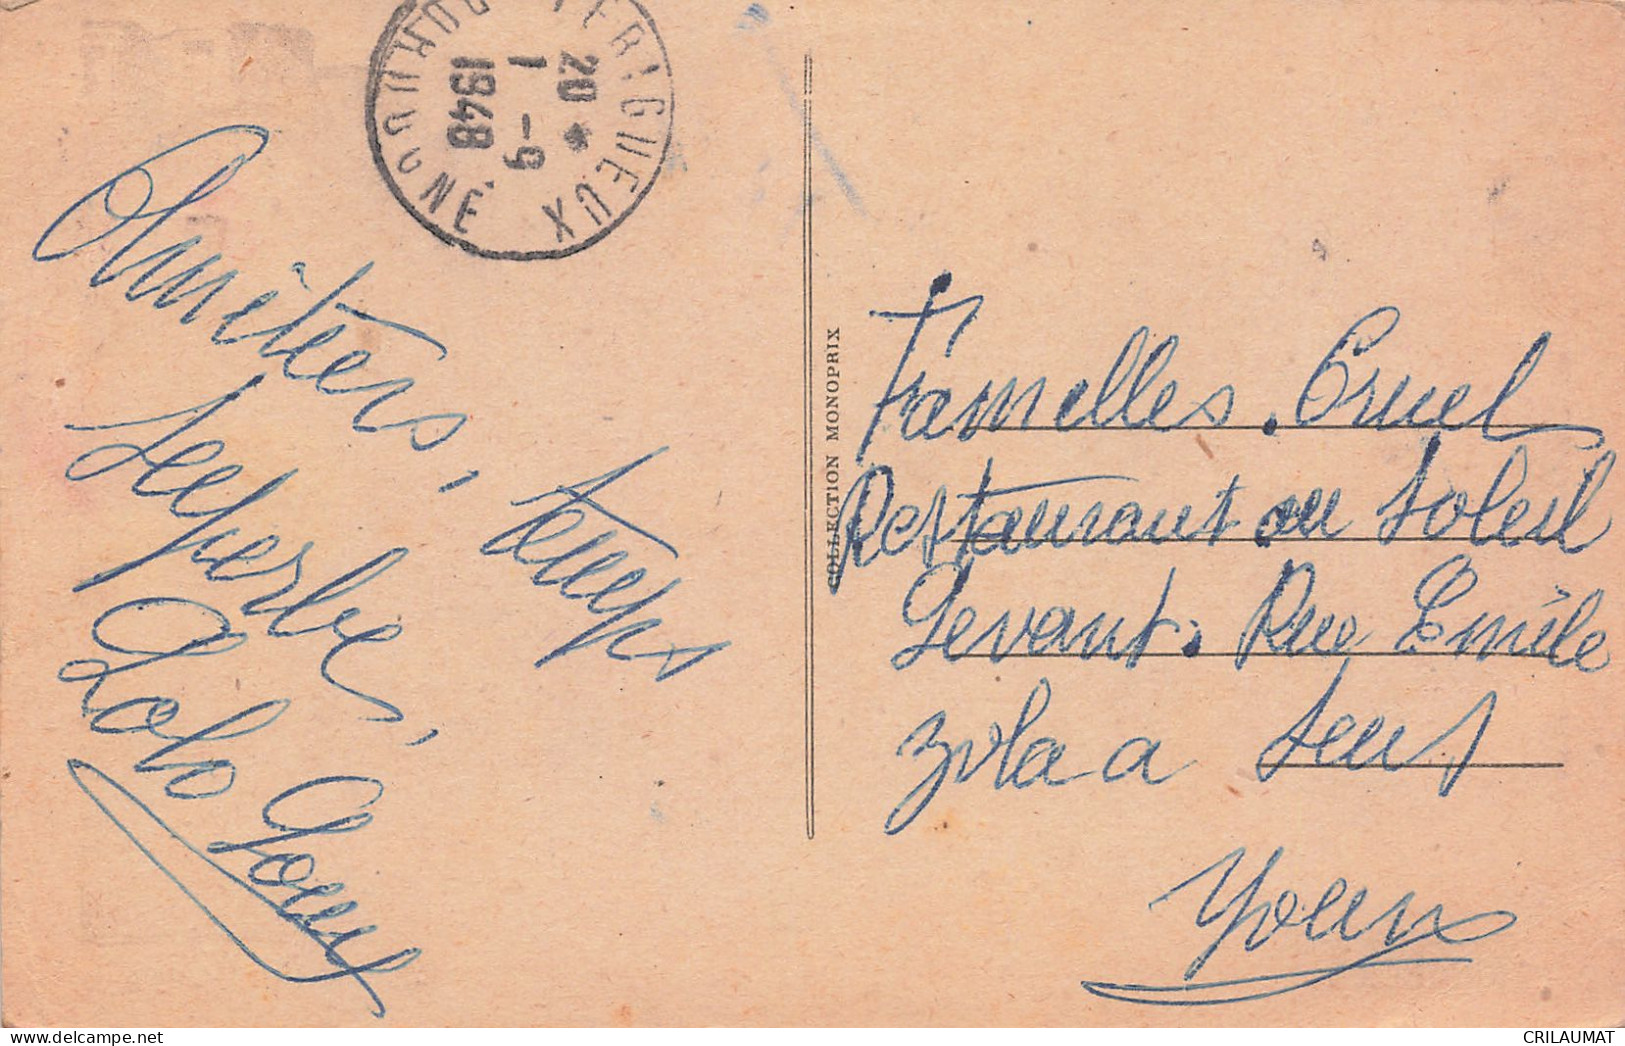 PERIGUEUX
DORDOGNE
20 *
1 - 9
1948
Amitiers, temps
superbe,
Lolo
COLLECTION MONOPRIX
Famelles. Cruel
Restaurant au Soleil
Levant. Rue Emile
Zola a Sens
Yonne
CRILAUMAT